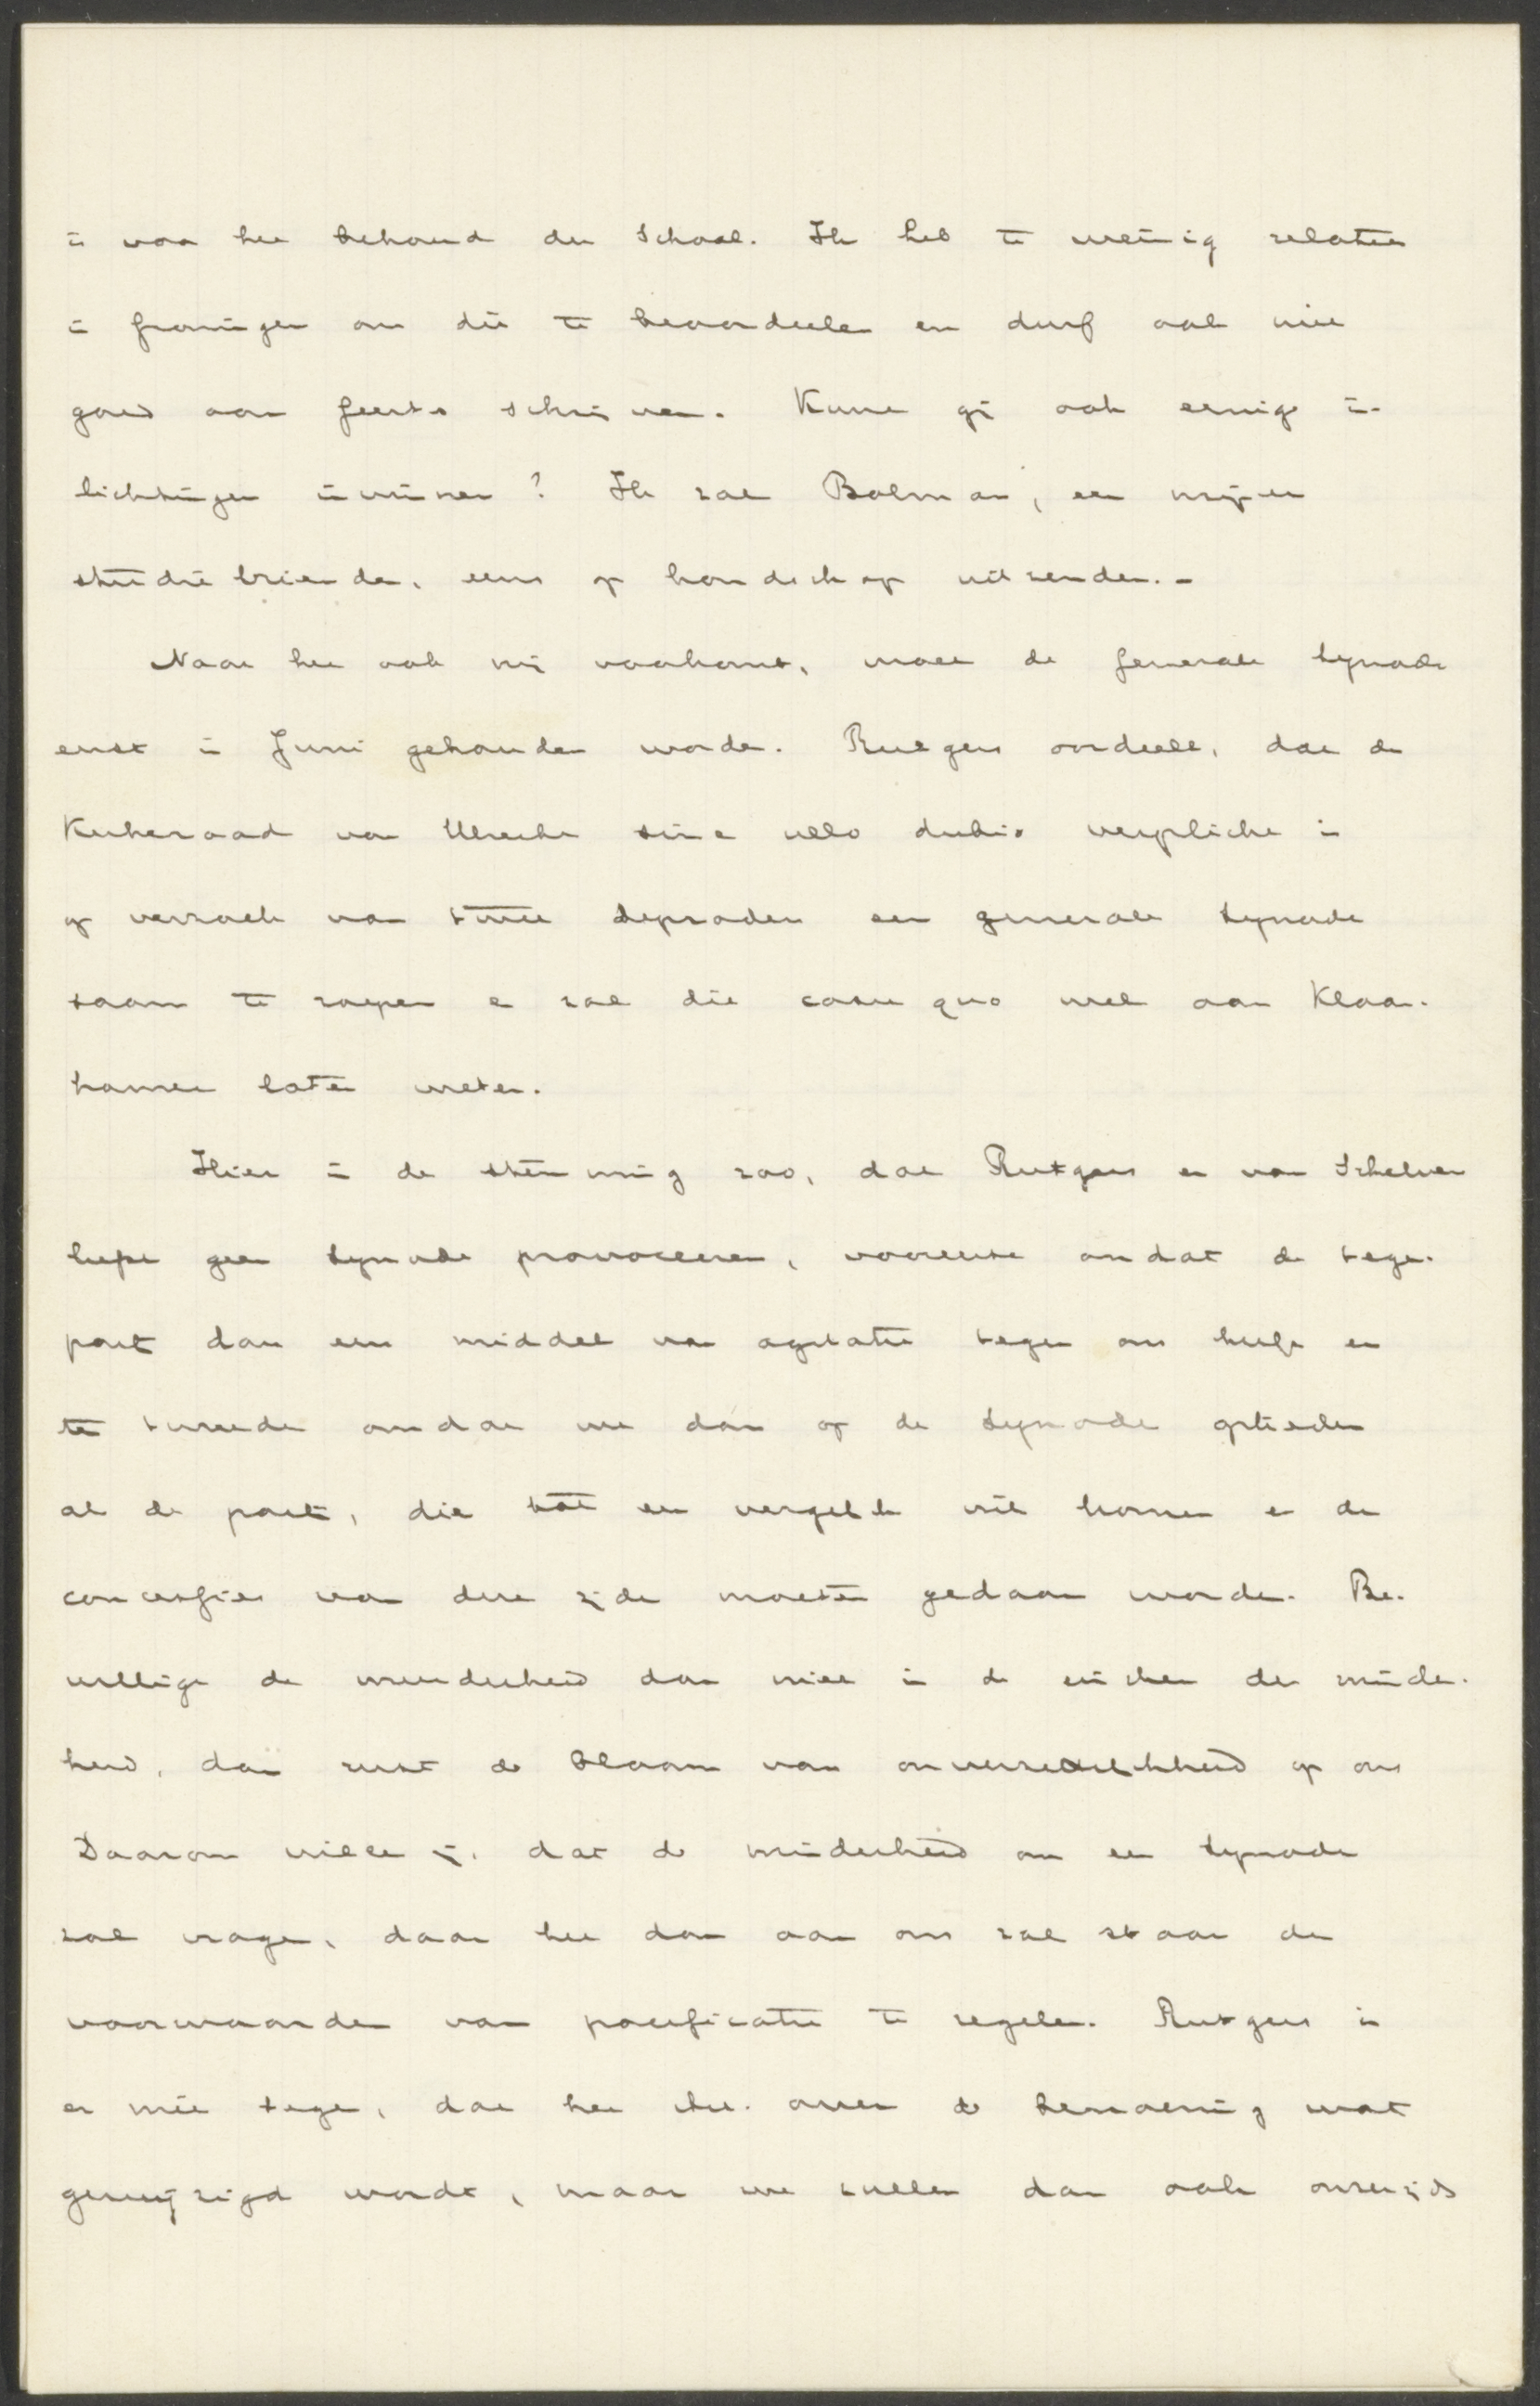 is voor het behoud der School. Ik heb te weinig relaties
in Groningen om dit te beoordeelen en durf ook niet
goed aan Geerts schrijven. Kunt gij ook eenige in-
lichtingen inwinnen? Ik zal Bolman, een mijner
studievrienden, eens op kondschap uitzenden. -
Naar het ook mij voorkomt, moet de Generale Synode
eerst in Juni gehouden worden. Rutgers oordeelt, dat de
Kerkeraad van Utrecht sine ullo dubio verplicht is
op verzoek van twee Synoden een generale Synode
saam te roepen en zal dit casu quo wel aan Klaar-
hamer laten weten.
Hier is de stemming zoo, dat Rutgers en van Schelven
liefst geen Synode provoceeren, vooreerst omdat de tegen-
partij dan een middel van agitatie tegen ons heeft en
ten tweede omdat we dan op de Synode optreden
als de partij, die tot een vergelijk wil komen en de
concessies van deze zijde moeten gedaan worden. Be-
willigt de meerderheid dan niet in de eischen der minder-
heid, dan rust de blaam van onverzettelijkheid op ons
Daarom willen zij, dat de minderheid om een Synode
zal vragen, daar het dan aan ons zal staan de
voorwaarden van pacificatie te regelen. Rutgers is
er niet tegen, dat het art. over de benoeming wat
gewijzigd wordt, maar we zullen dan ook onzerzijds